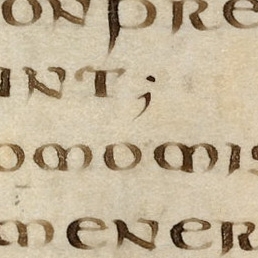 onpre
int;
omomis
mener